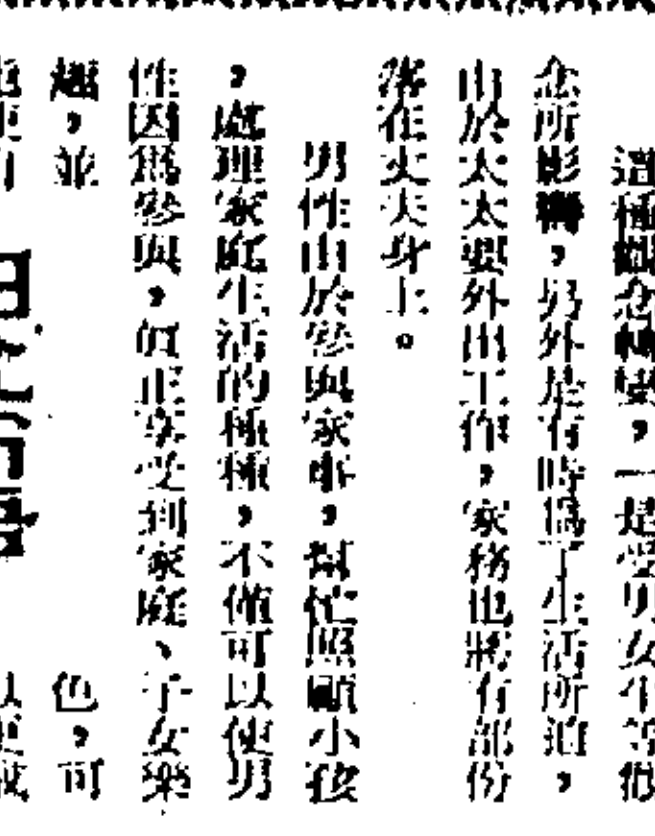 這種觀念轉變，一是受男女平等觀
念所影響，另外是有時為了生活所迫，
由於太太要外出工作，家務也將有部份
落在丈夫身上。
男性由於參與家事，幫忙照顧小孩
，處理家庭生活的種種，不僅可以使男
性因為參與，真正享受到家庭、子女樂
趣，並
色，可